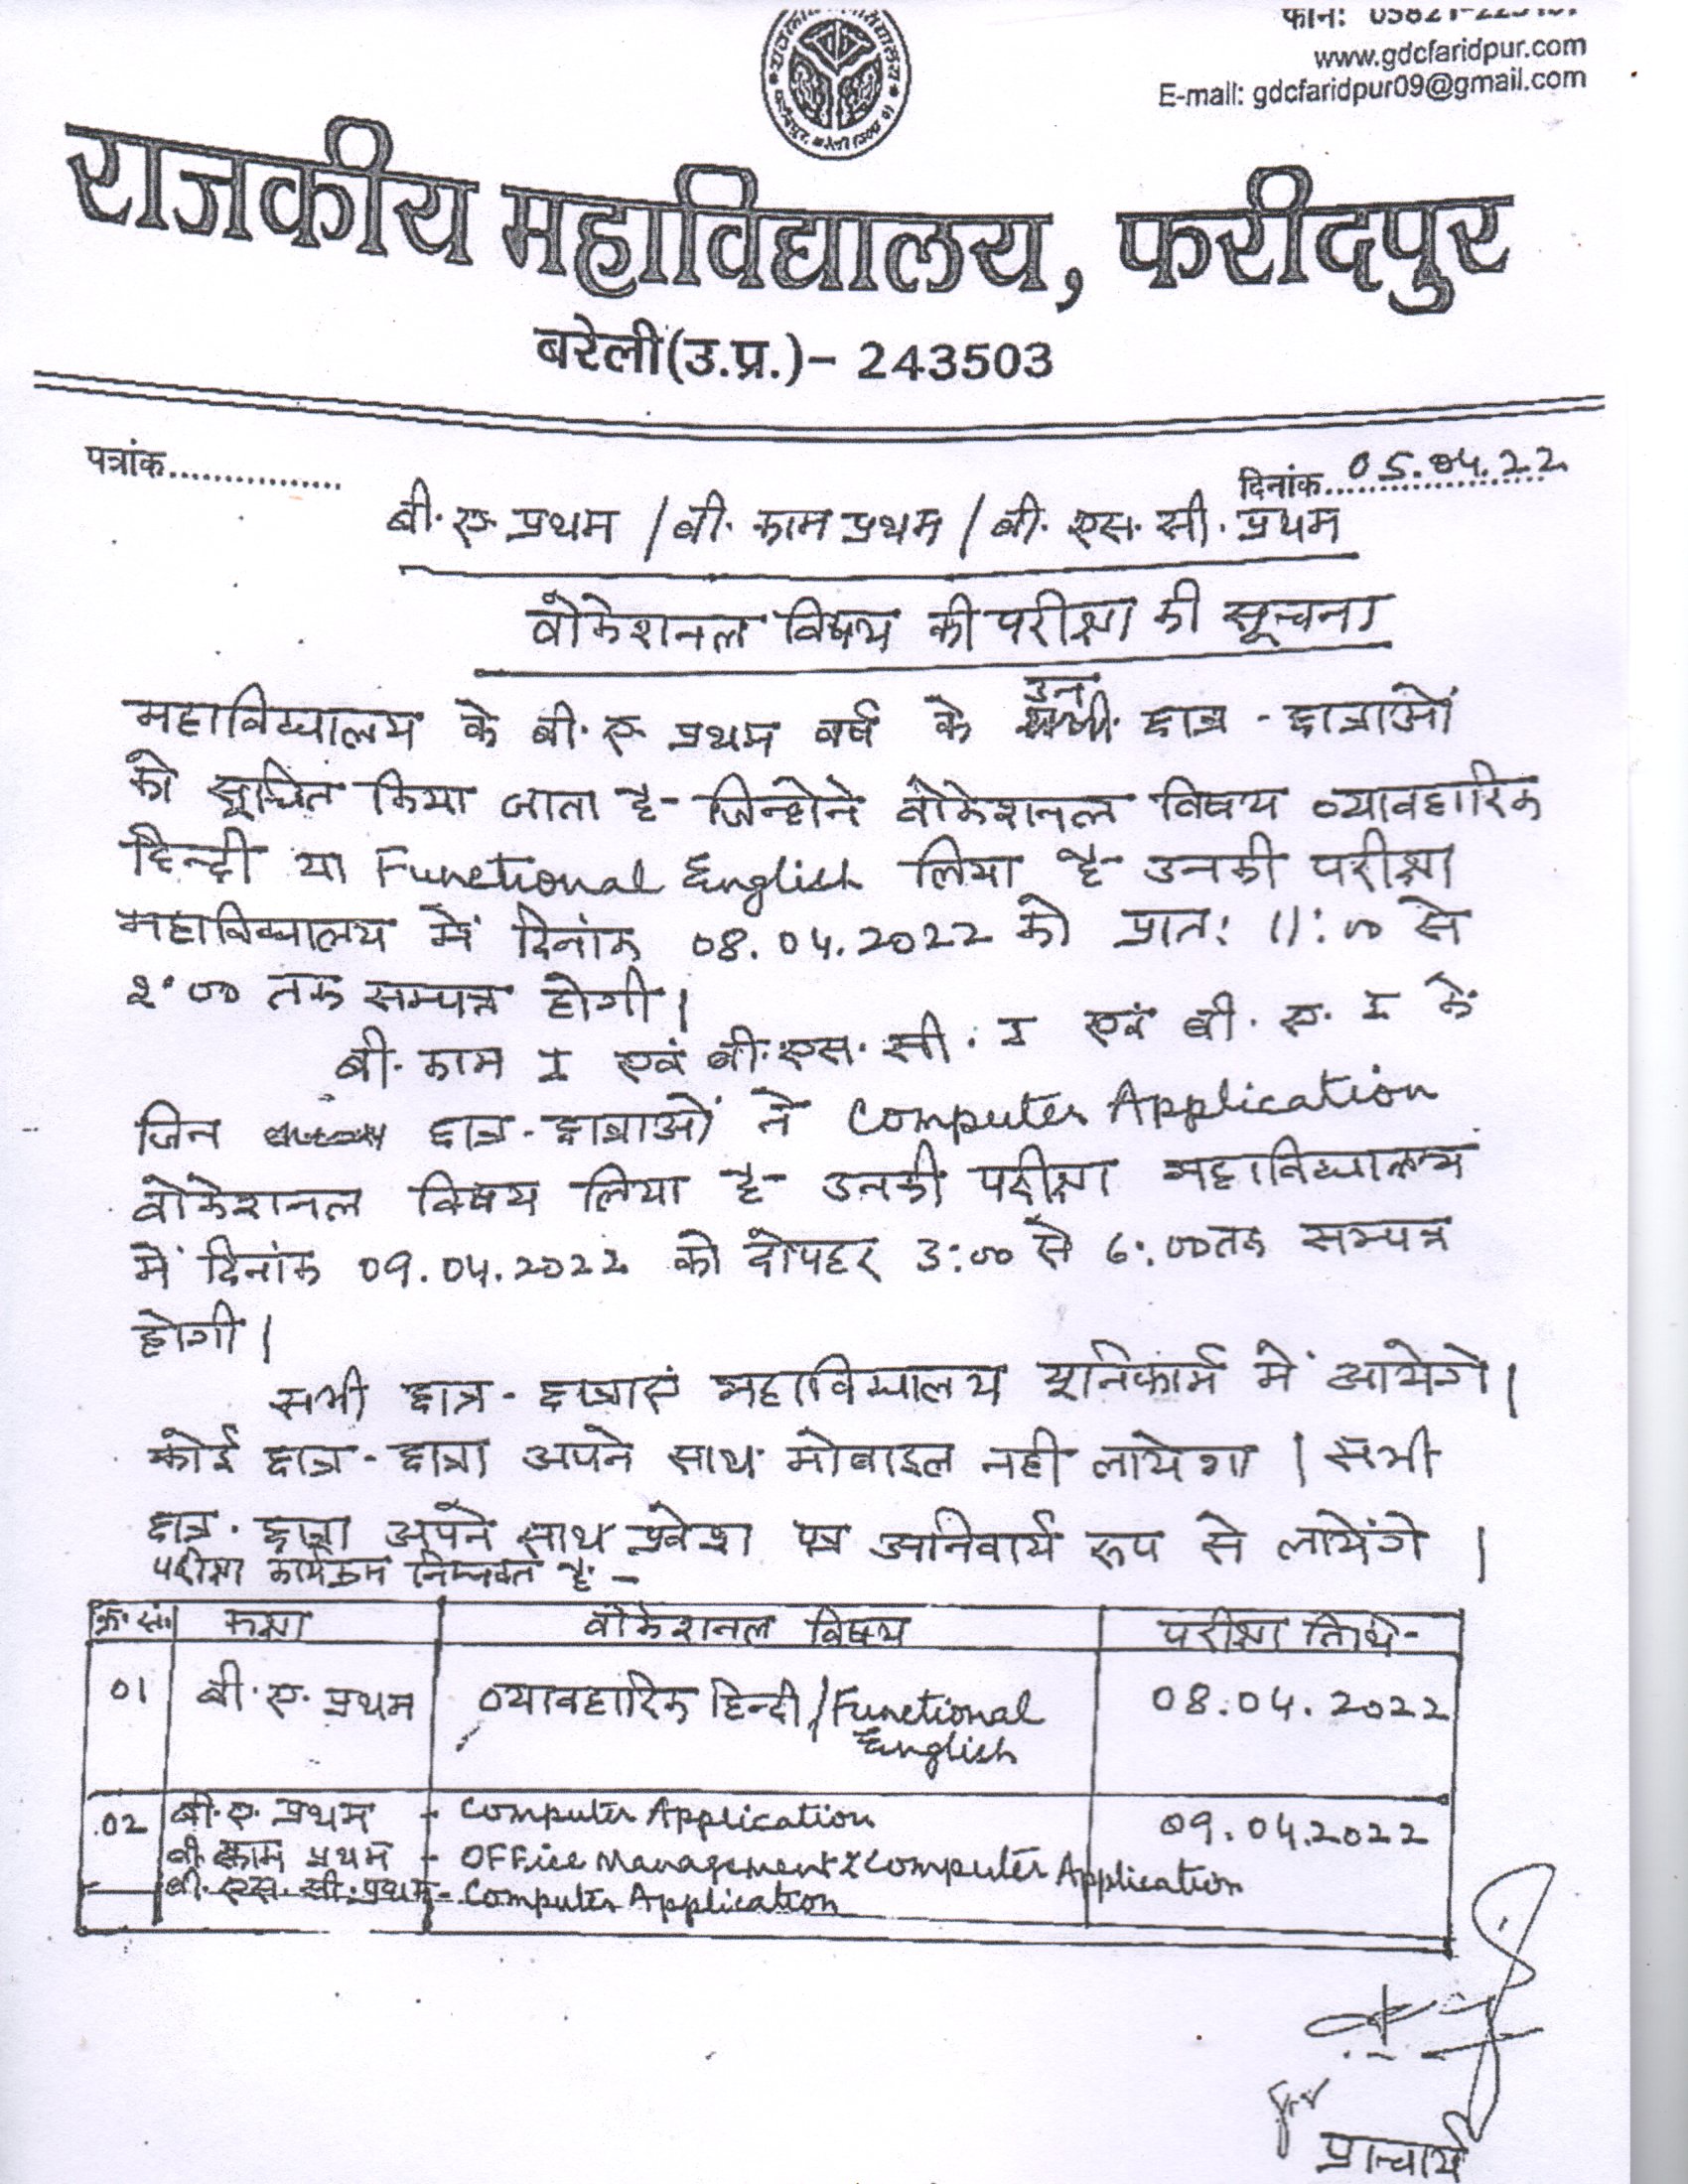 www.gdcfaridpur.com
E-mail: gdcfaridpur09@gmail.com
राजकीय महाविद्यालय, फरीदपुर
बरेली(उ.प्र.)- 243503
पत्रांक................
दिनांक 05.04.22
बी.ए. प्रथम / बी. काम प्रथम / बी. एस. सी. प्रथम
वोकेशनल विषय की परीक्षा की सूचना
महाविद्यालय के बी.ए. प्रथम वर्ष के उन छात्र - छात्राओं
को सूचित किया जाता है जिन्होने वोकेशनल विषय व्यावहारिक
हिन्दी या Functional English लिया है उनकी परीक्षा
महाविद्यालय में दिनांक 08.04.2022 को प्रात: 11:00 से
2:00 तक सम्पन्न होगी।
बी. काम I एवं बी.एस. सी. I एवं बी. ए. I के
जिन छात्र-छात्राओं ने Computer Application
वोकेशनल विषय लिया है उनकी परीक्षा महाविद्यालय
में दिनांक 09.04.2022 को दोपहर 3:00 से 6:00 तक सम्पन्न
होगी।
सभी छात्र - छात्राएं महाविद्यालय यूनिफार्म में आयेगे।
कोई छात्र - छात्रा अपने साथ मोबाइल नही लायेगा। सभी
छात्र - छात्रा अपने साथ प्रवेश पत्र अनिवार्य रूप से लायेंगे।
परीक्षा कार्यक्रम निम्नवत है -
क्र. सं. कक्षा वोकेशनल विषय परीक्षा तिथि
01 बी. ए. प्रथम व्यावहारिक हिन्दी / Functional 08.04.2022
English
02 बी. ए. प्रथम - Computer Application 09.04.2022
बी. काम प्रथम - Office Management & Computer Application
बी. एस. सी. प्रथम - Computer Application
प्राचार्य